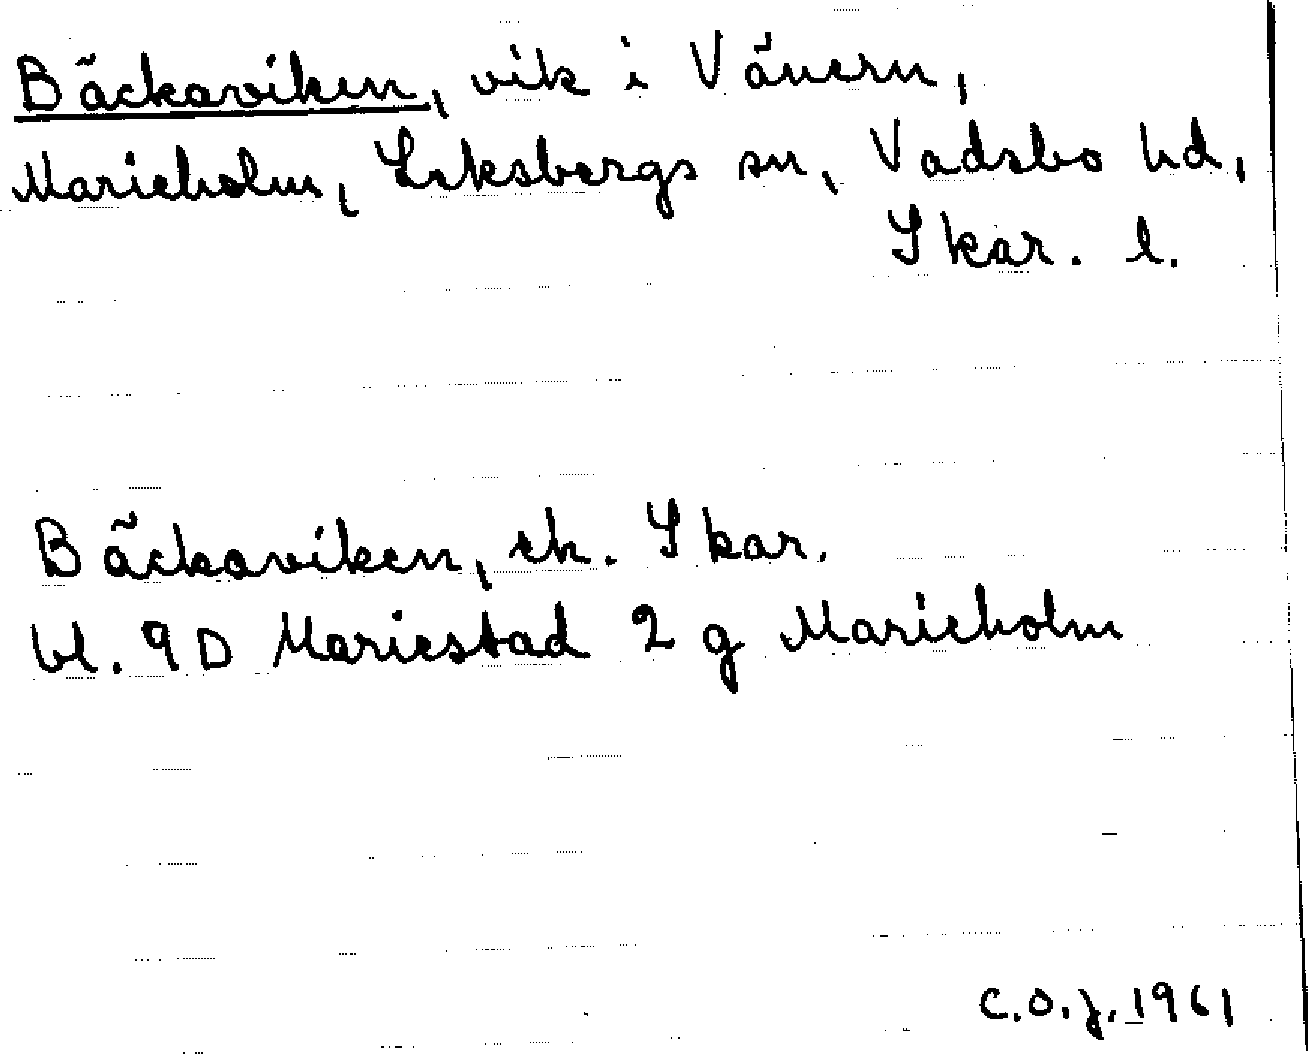 Bäckaviken, vik i Vänern,
Marieholm, Leksbergs sn, Vadsbo hd,
Skar. l.
Bäckaviken, ek. Skar.
bl. 9D Mariestad 2 g Marieholm
C.O.J. 1961